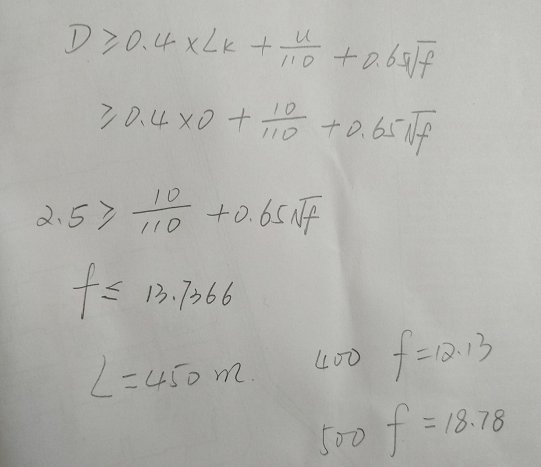 D ≥ 0.4 × Lk + u/110 + 0.65√f
≥ 0.4 × 0 + 10/110 + 0.65√f
2.5 ≥ 10/110 + 0.65√f
f ≤ 13.7366
L = 450 m.
400 f = 12.13
500 f = 18.78